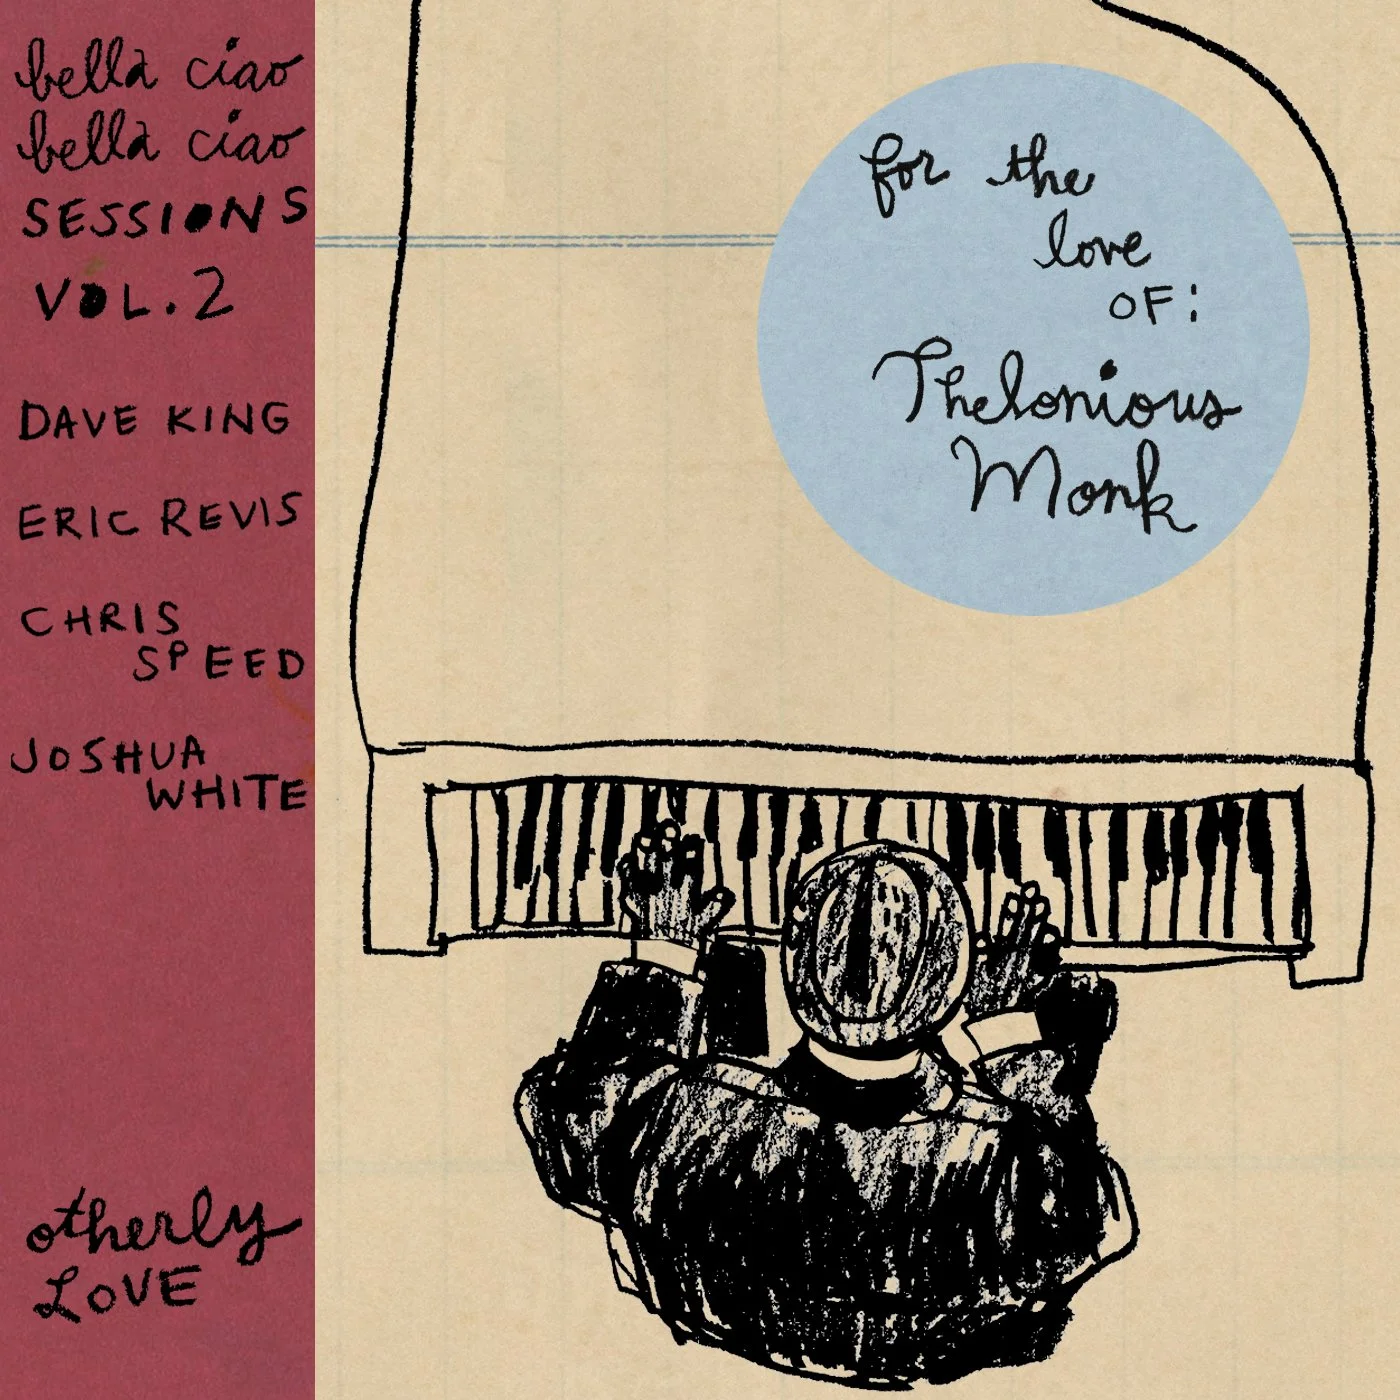 bella ciao
bella ciao
SESSIONS
VOL.2
DAVE KING
ERIC REVIS
CHRIS
SPEED
JOSHUA
WHITE
otherly
LOVE
for the
love
OF:
Thelonious
Monk